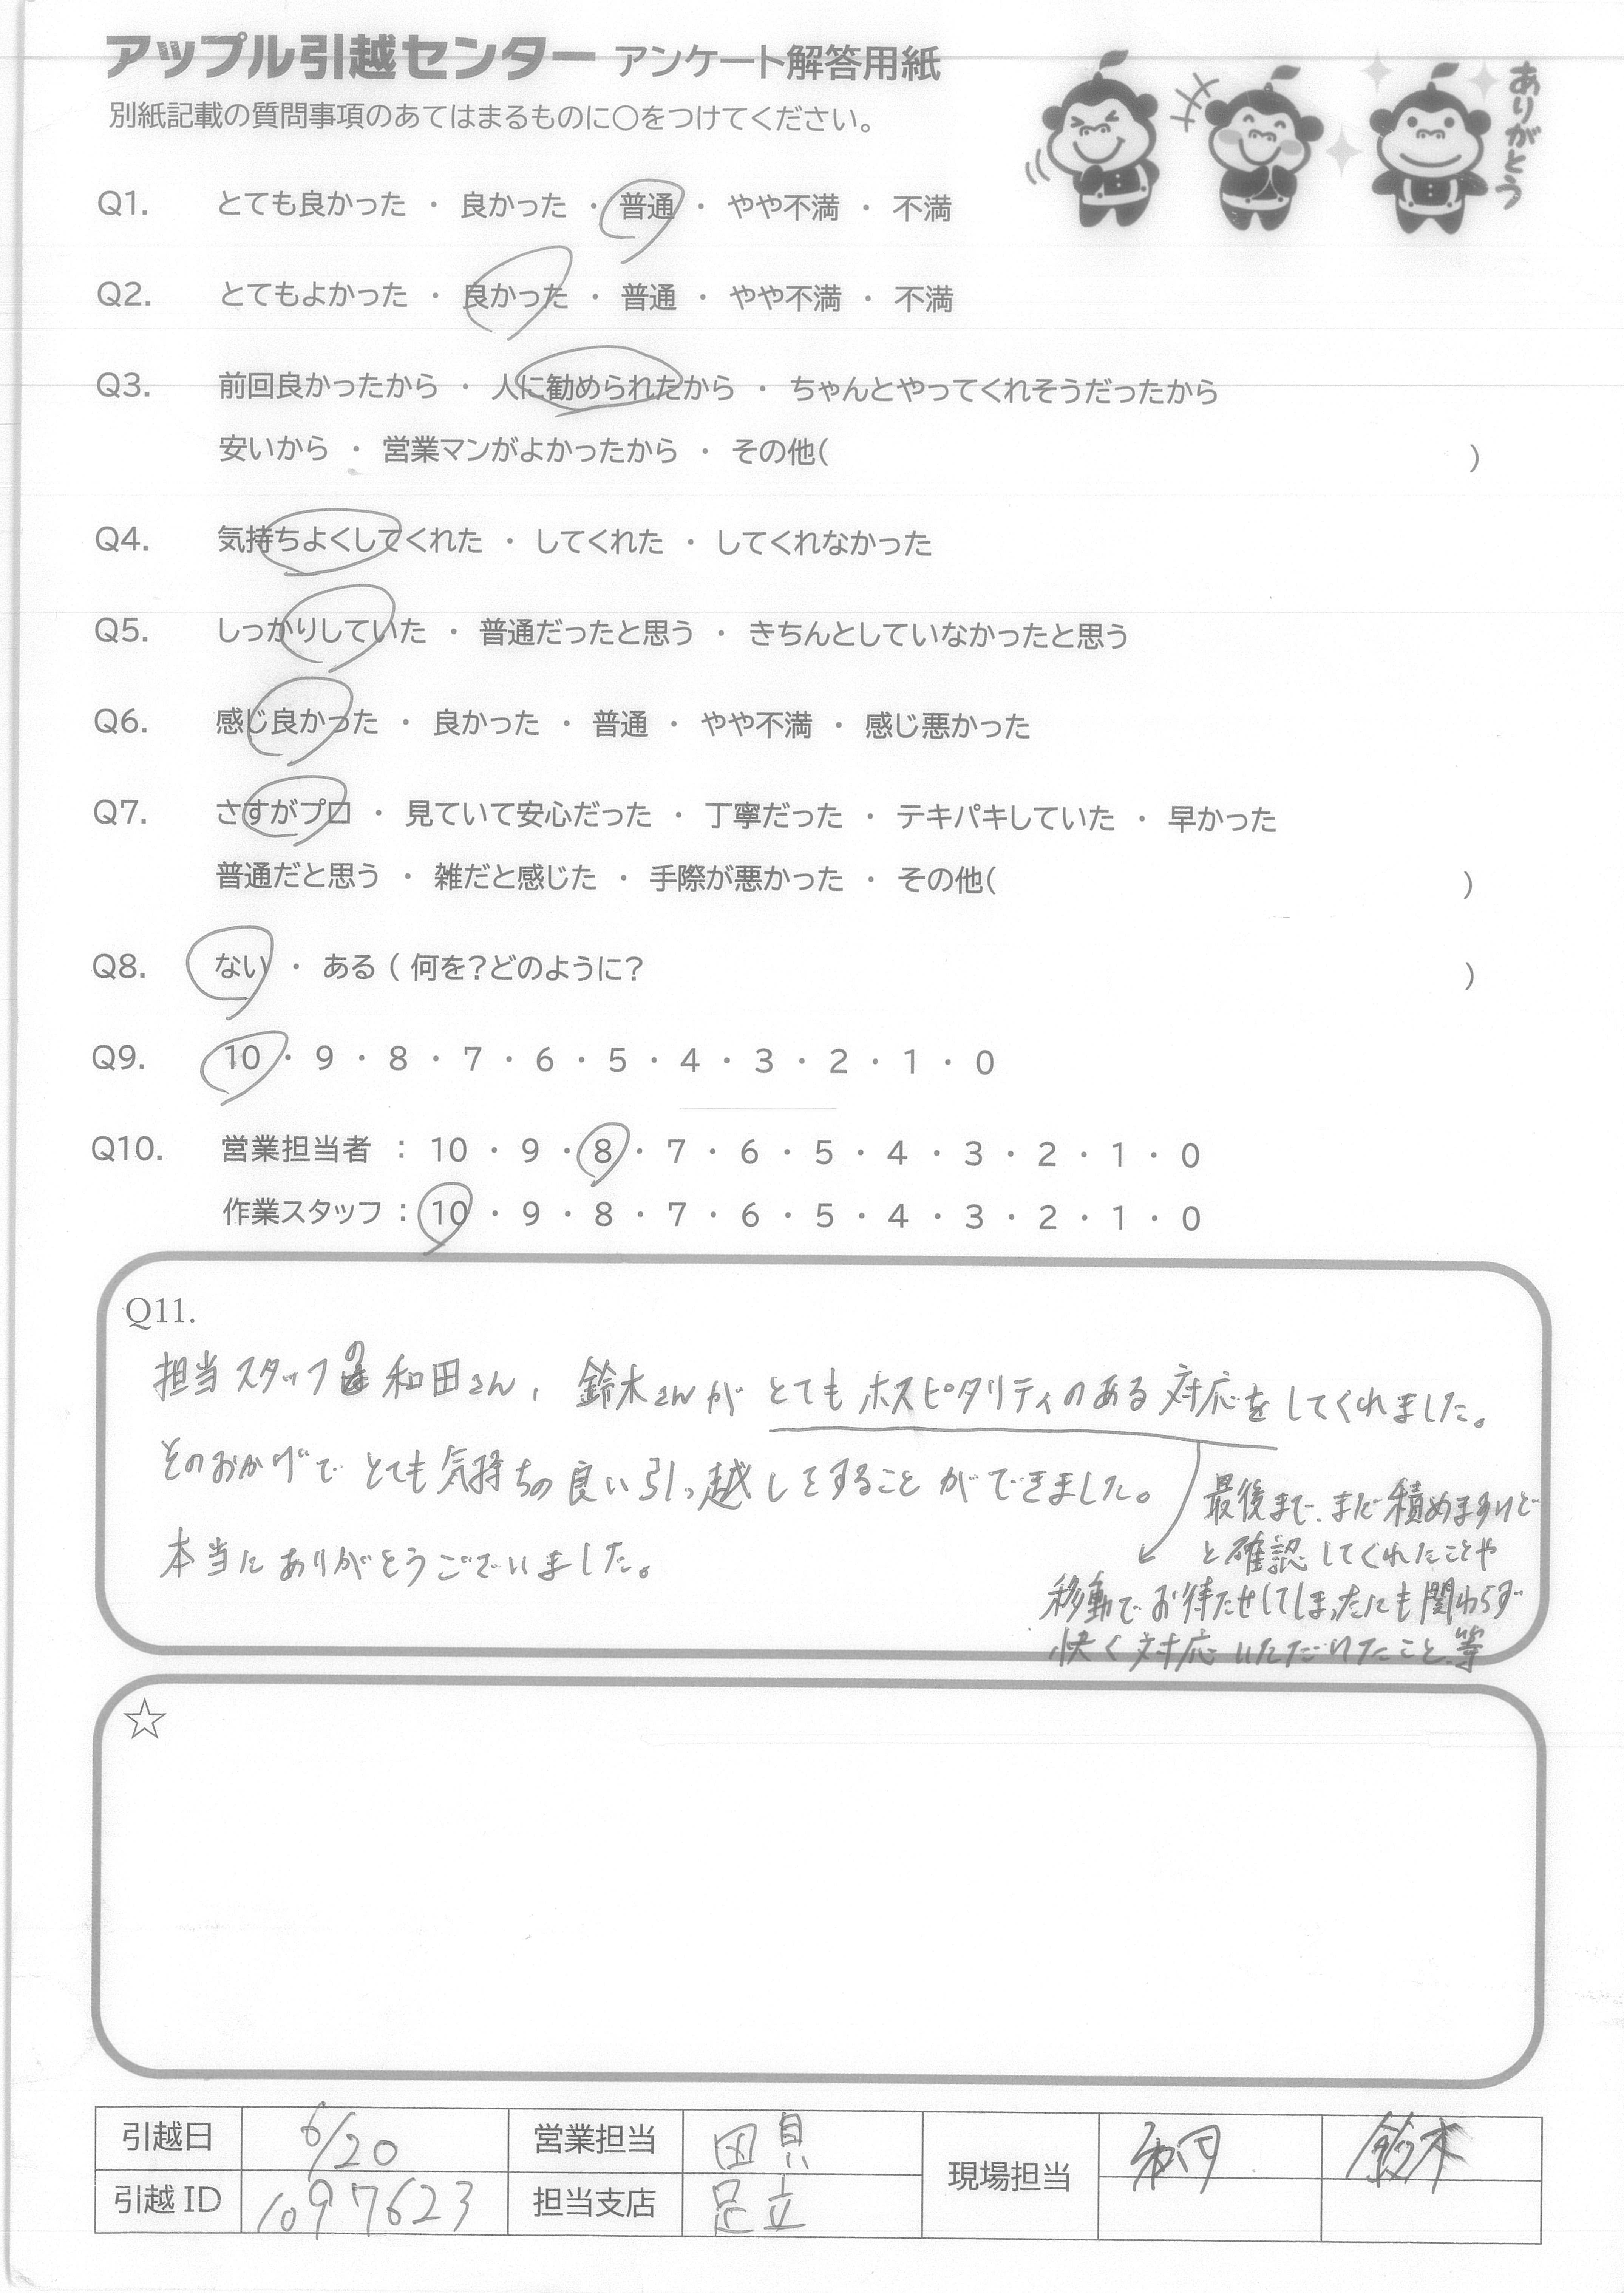 アップル引越センター アンケート解答用紙
別紙記載の質問事項のあてはまるものに〇をつけてください。
ありがとう
Q1. とても良かった ・ 良かった ・ 普通 ・ やや不満 ・ 不満
Q2. とてもよかった ・ 良かった ・ 普通 ・ やや不満 ・ 不満
Q3. 前回良かったから ・ 人に勧められたから ・ ちゃんとやってくれそうだったから
安いから ・ 営業マンがよかったから ・ その他( )
Q4. 気持ちよくしてくれた ・ してくれた ・ してくれなかった
Q5. しっかりしていた ・ 普通だったと思う ・ きちんとしていなかったと思う
Q6. 感じ良かった ・ 良かった ・ 普通 ・ やや不満 ・ 感じ悪かった
Q7. さすがプロ ・ 見ていて安心だった ・ 丁寧だった ・ テキパキしていた ・ 早かった
普通だと思う ・ 雑だと感じた ・ 手際が悪かった ・ その他( )
Q8. ない ・ ある ( 何を?どのように? )
Q9. 10 ・ 9 ・ 8 ・ 7 ・ 6 ・ 5 ・ 4 ・ 3 ・ 2 ・ 1 ・ 0
Q10. 営業担当者 : 10 ・ 9 ・ 8 ・ 7 ・ 6 ・ 5 ・ 4 ・ 3 ・ 2 ・ 1 ・ 0
作業スタッフ : 10 ・ 9 ・ 8 ・ 7 ・ 6 ・ 5 ・ 4 ・ 3 ・ 2 ・ 1 ・ 0
Q11.
担当スタッフの和田さん、鈴木さんがとてもホスピタリティのある対応をしてくれました。
そのおかげでとても気持ちの良い引っ越しをすることができました。
本当にありがとうございました。
最後まで、まだ積めますけど
と確認してくれたことや
移動でお待たせしてしまったにも関わらず
快く対応いただいたこと、等
☆
引越日 6/20 営業担当 現場担当 和田 鈴木
引越 ID 1097623 担当支店 足立